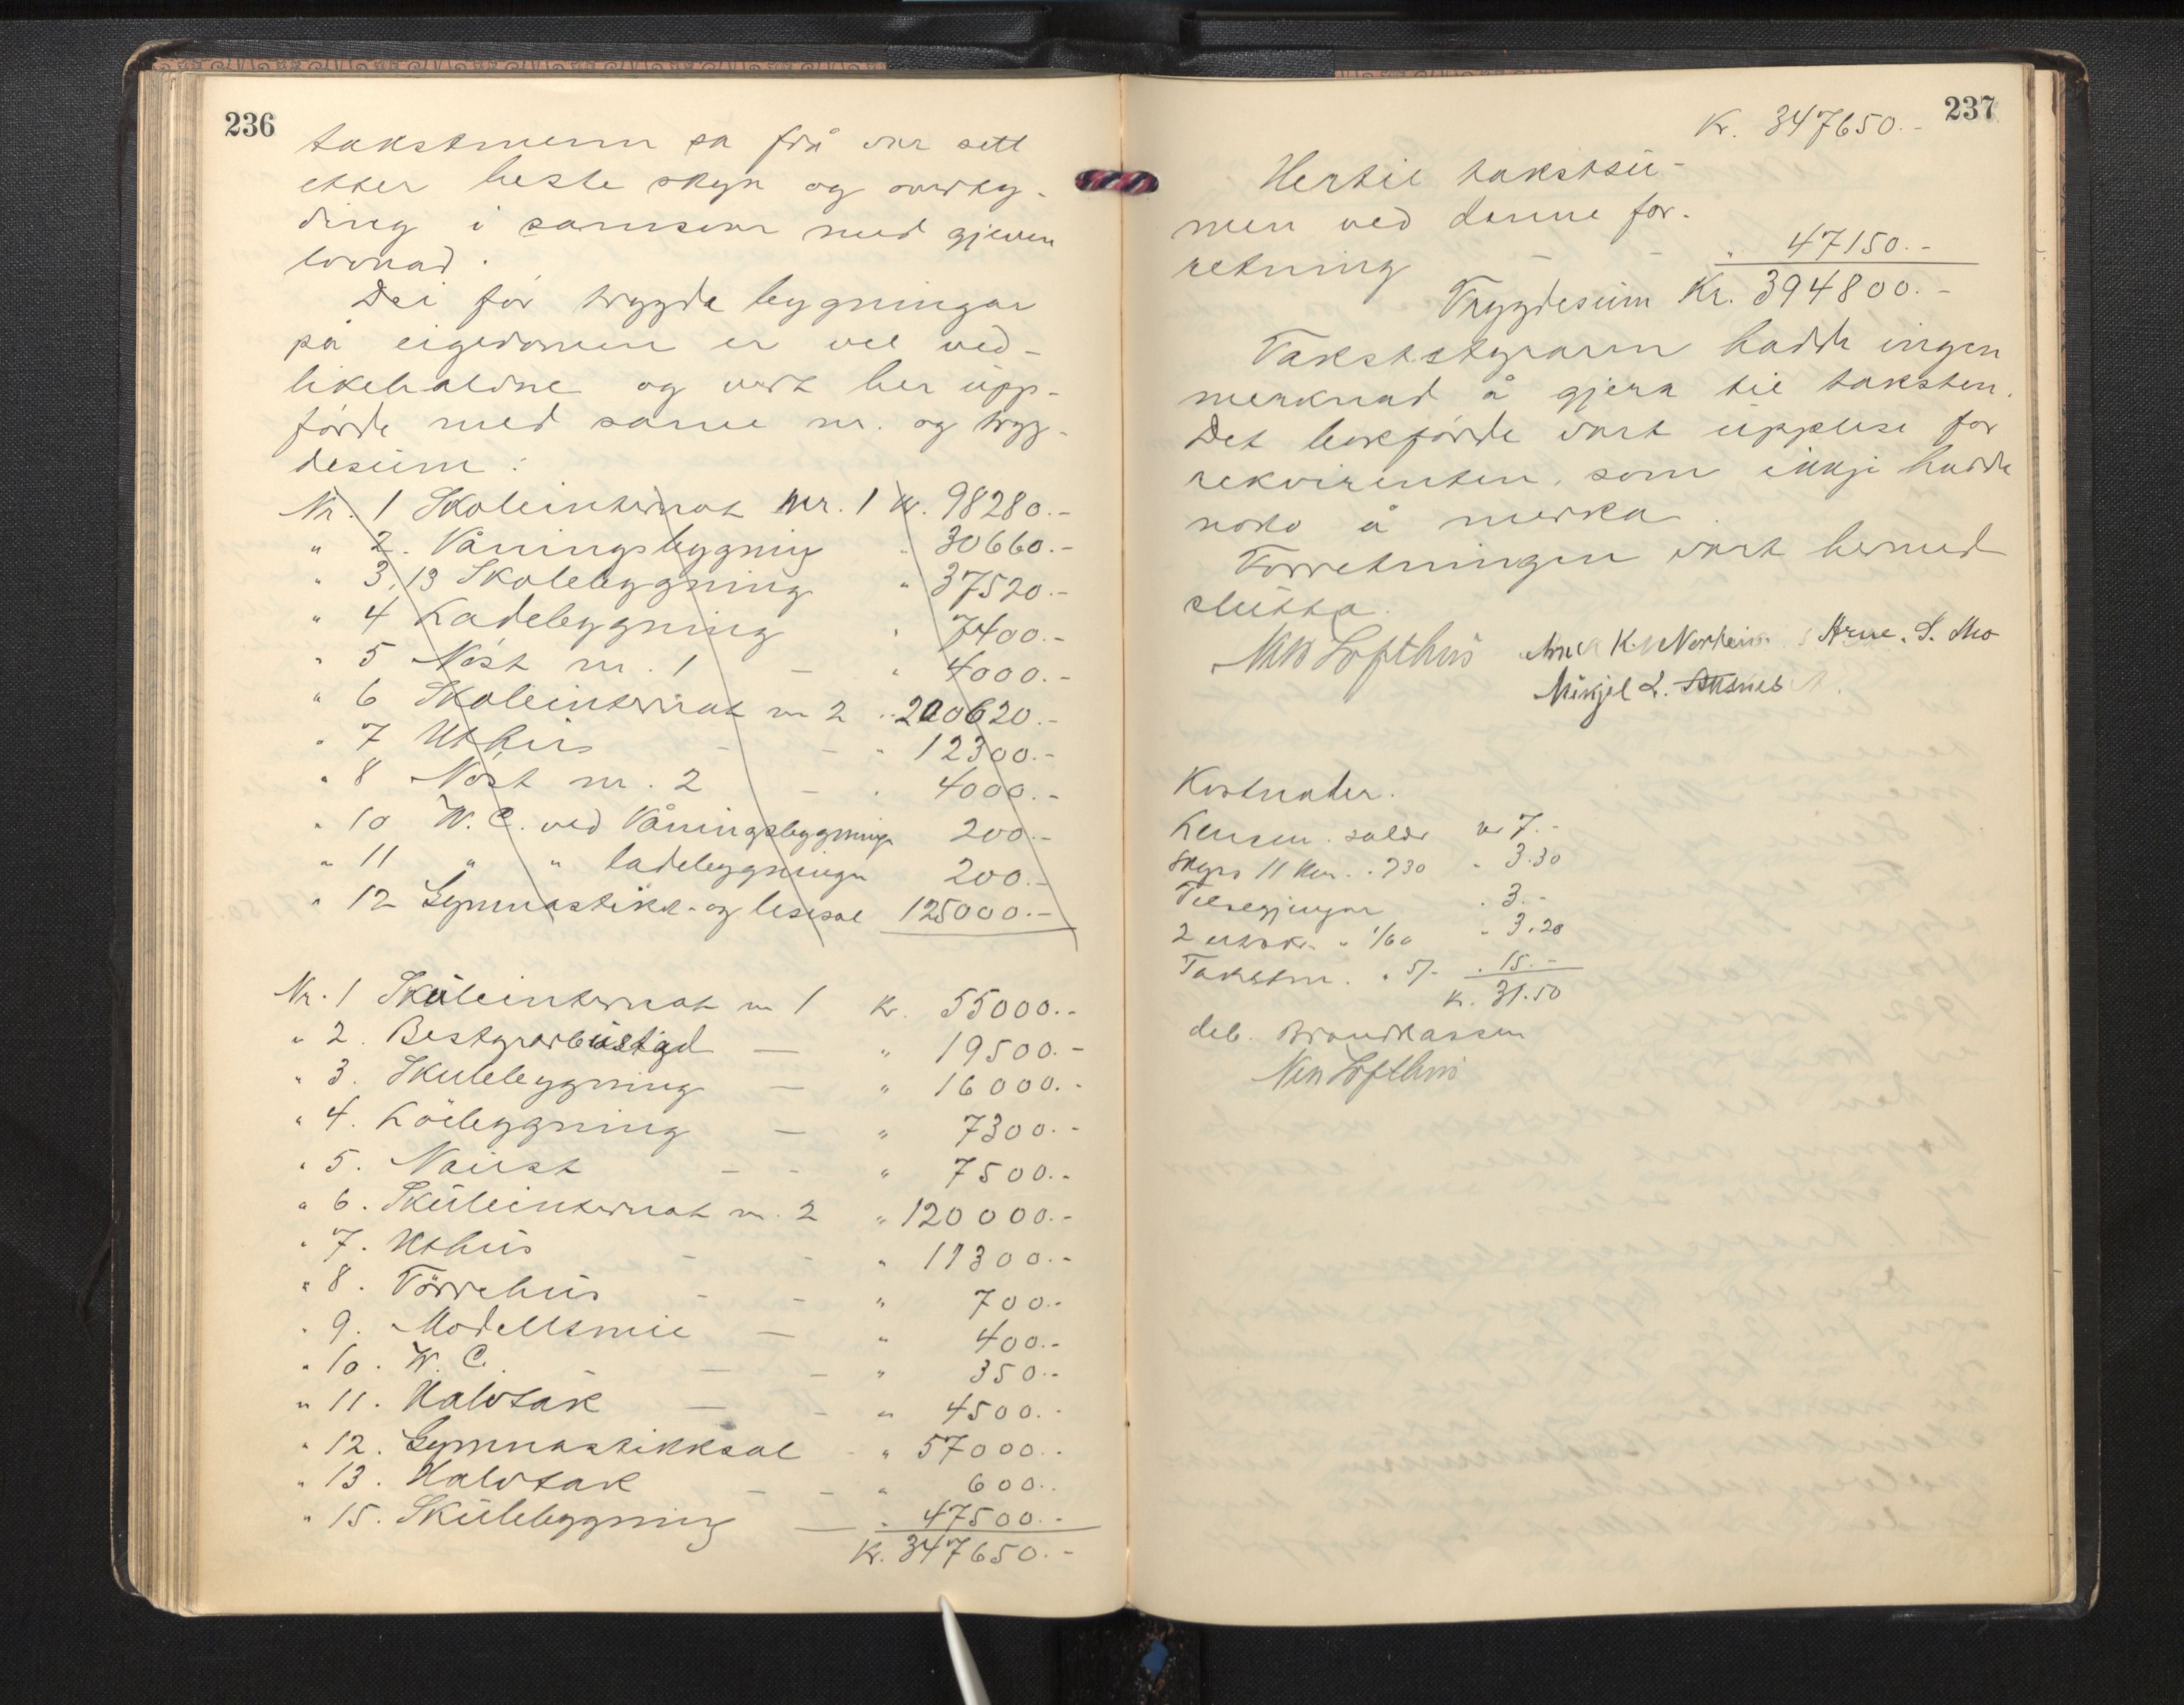 236
takstmenn sa frå var sett
etter beste skyn og overty-
ding i samsvar med gjeven
lovnad.
Dei før trygda bygningar
på eigedomen er vel ved-
likehaldne og vert her upp-
førde med same nr. og tryg-
desum:
Nr. 1 Skoleinternat Nr. 1 kr. 98280.-
" 2. Våningsbygning " 30660.-
" 3,13 Skolebygning " 37520.-
" 4 Ladebygning " 7400.-
" 5 Nøst nr. 1 — " 4000.-
" 6 Skoleinternat nr 2 " 220620.-
" 7 Uthus - - " 12300.-
" 8 Nøst nr. 2 — " 4000.-
" 10 W.C. ved Våningsbygningen 200.-
" 11 " " ladebygningen 200.-
" 12 Gymnastikk- og lesesal 125000.-
Nr. 1 Skuleinternat nr 1 kr. 55000.-
" 2. Bestyrarbustad — " 19500.-
" 3. Skulebygning — " 16000.-
" 4. Löebygning — " 7300.-
" 5. Naust - - " 7500.-
" 6. Skuleinternat nr. 2 " 120000.-
" 7. Uthus - " 11300.-
" 8. Törrehus - - " 700.-
" 9. Modellsmie — " 400.-
" 10. W.C. — - " 350.-
" 11. Halvtak — - " 4500.-
" 12. Gymnastikksal - " 57000.-
" 13. Halvtak - - " 600.-
" 15. Skulebygning — " 47500.-
Kr. 347650.-
237
Kr. 347650.-
Hertil takstsu-
men ved denne for-
retning - - " 47150.-
Trygdesum Kr. 394800.-
Takststyraren hadde ingen
merknad å gjera til taksten.
Det bokførde vart upplese for
rekvirenten, som ikkje hadde
noko å merka.
Forretningen vart hermed
slutta.
Nils Lofthus Arne K. Norheim Arne. S. Mo
Mikjel L.
Kostnader.
Lensm. salær kr 7.-
Skyss 11 km. " 230 " 3.30
Tilsegjingar " 3.-
2 utskr. " 1/60 " 3.20
Takstm. " 5/- " 15.-
Kr. 31.50
deb. Brandkassen
Nils Lofthus